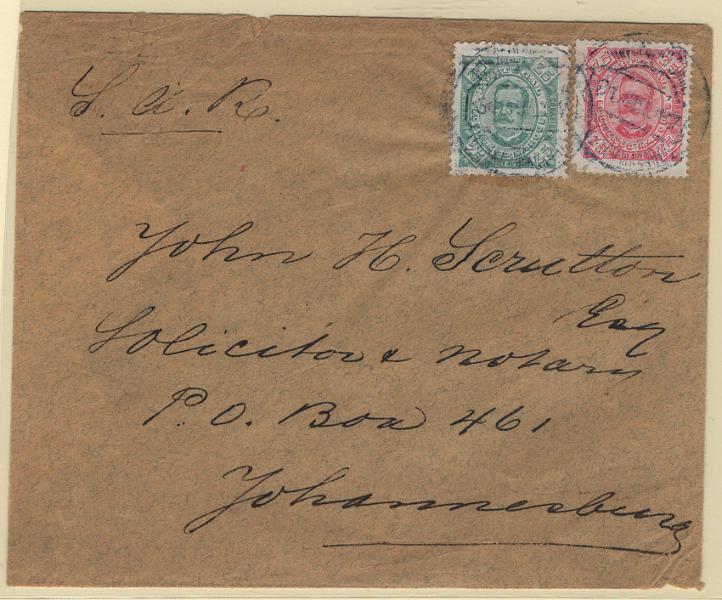 S. A. R.
John H. Scrutton
Esq
Solicitor & Notary
P.O. Box 461
Johannesburg